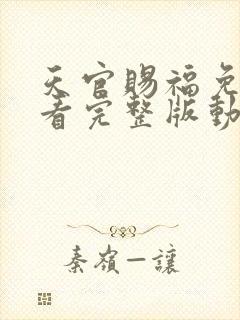 天官賜福免
看完整版動
秦嶺一讓